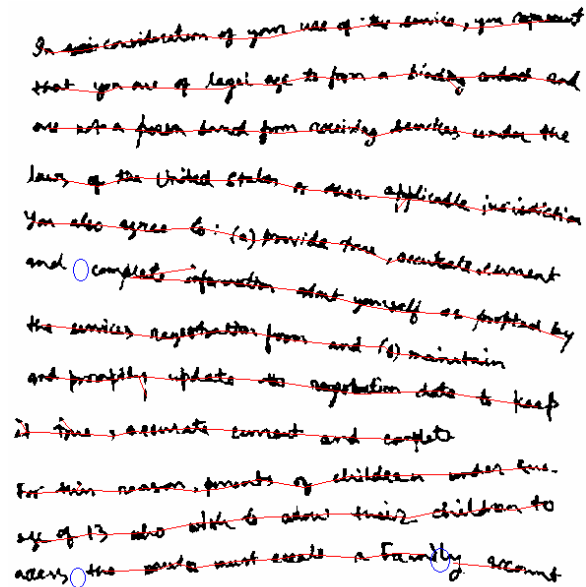 In consideration of your use of the service, you represent
that you are of legal age to form a binding contract and
are not a person barred from receiving services under the
laws of the United States or other applicable jurisdiction
You also agree to: (a) provide true, accurate, current
and complete information about yourself as prompted by
the services registration form and (b) maintain
and promptly update the registration data to keep
it true, accurate current and complete
For this reason, parents of children under the
age of 13 who wish to allow their children to
access the service must create a Family account